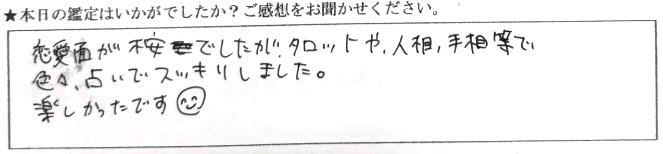 ★本日の鑑定はいかがでしたか？ご感想をお聞かせください。
恋愛面が不安でしたが、タロットや、人相，手相等で
色々、占いでスッキリしました。
楽しかったです